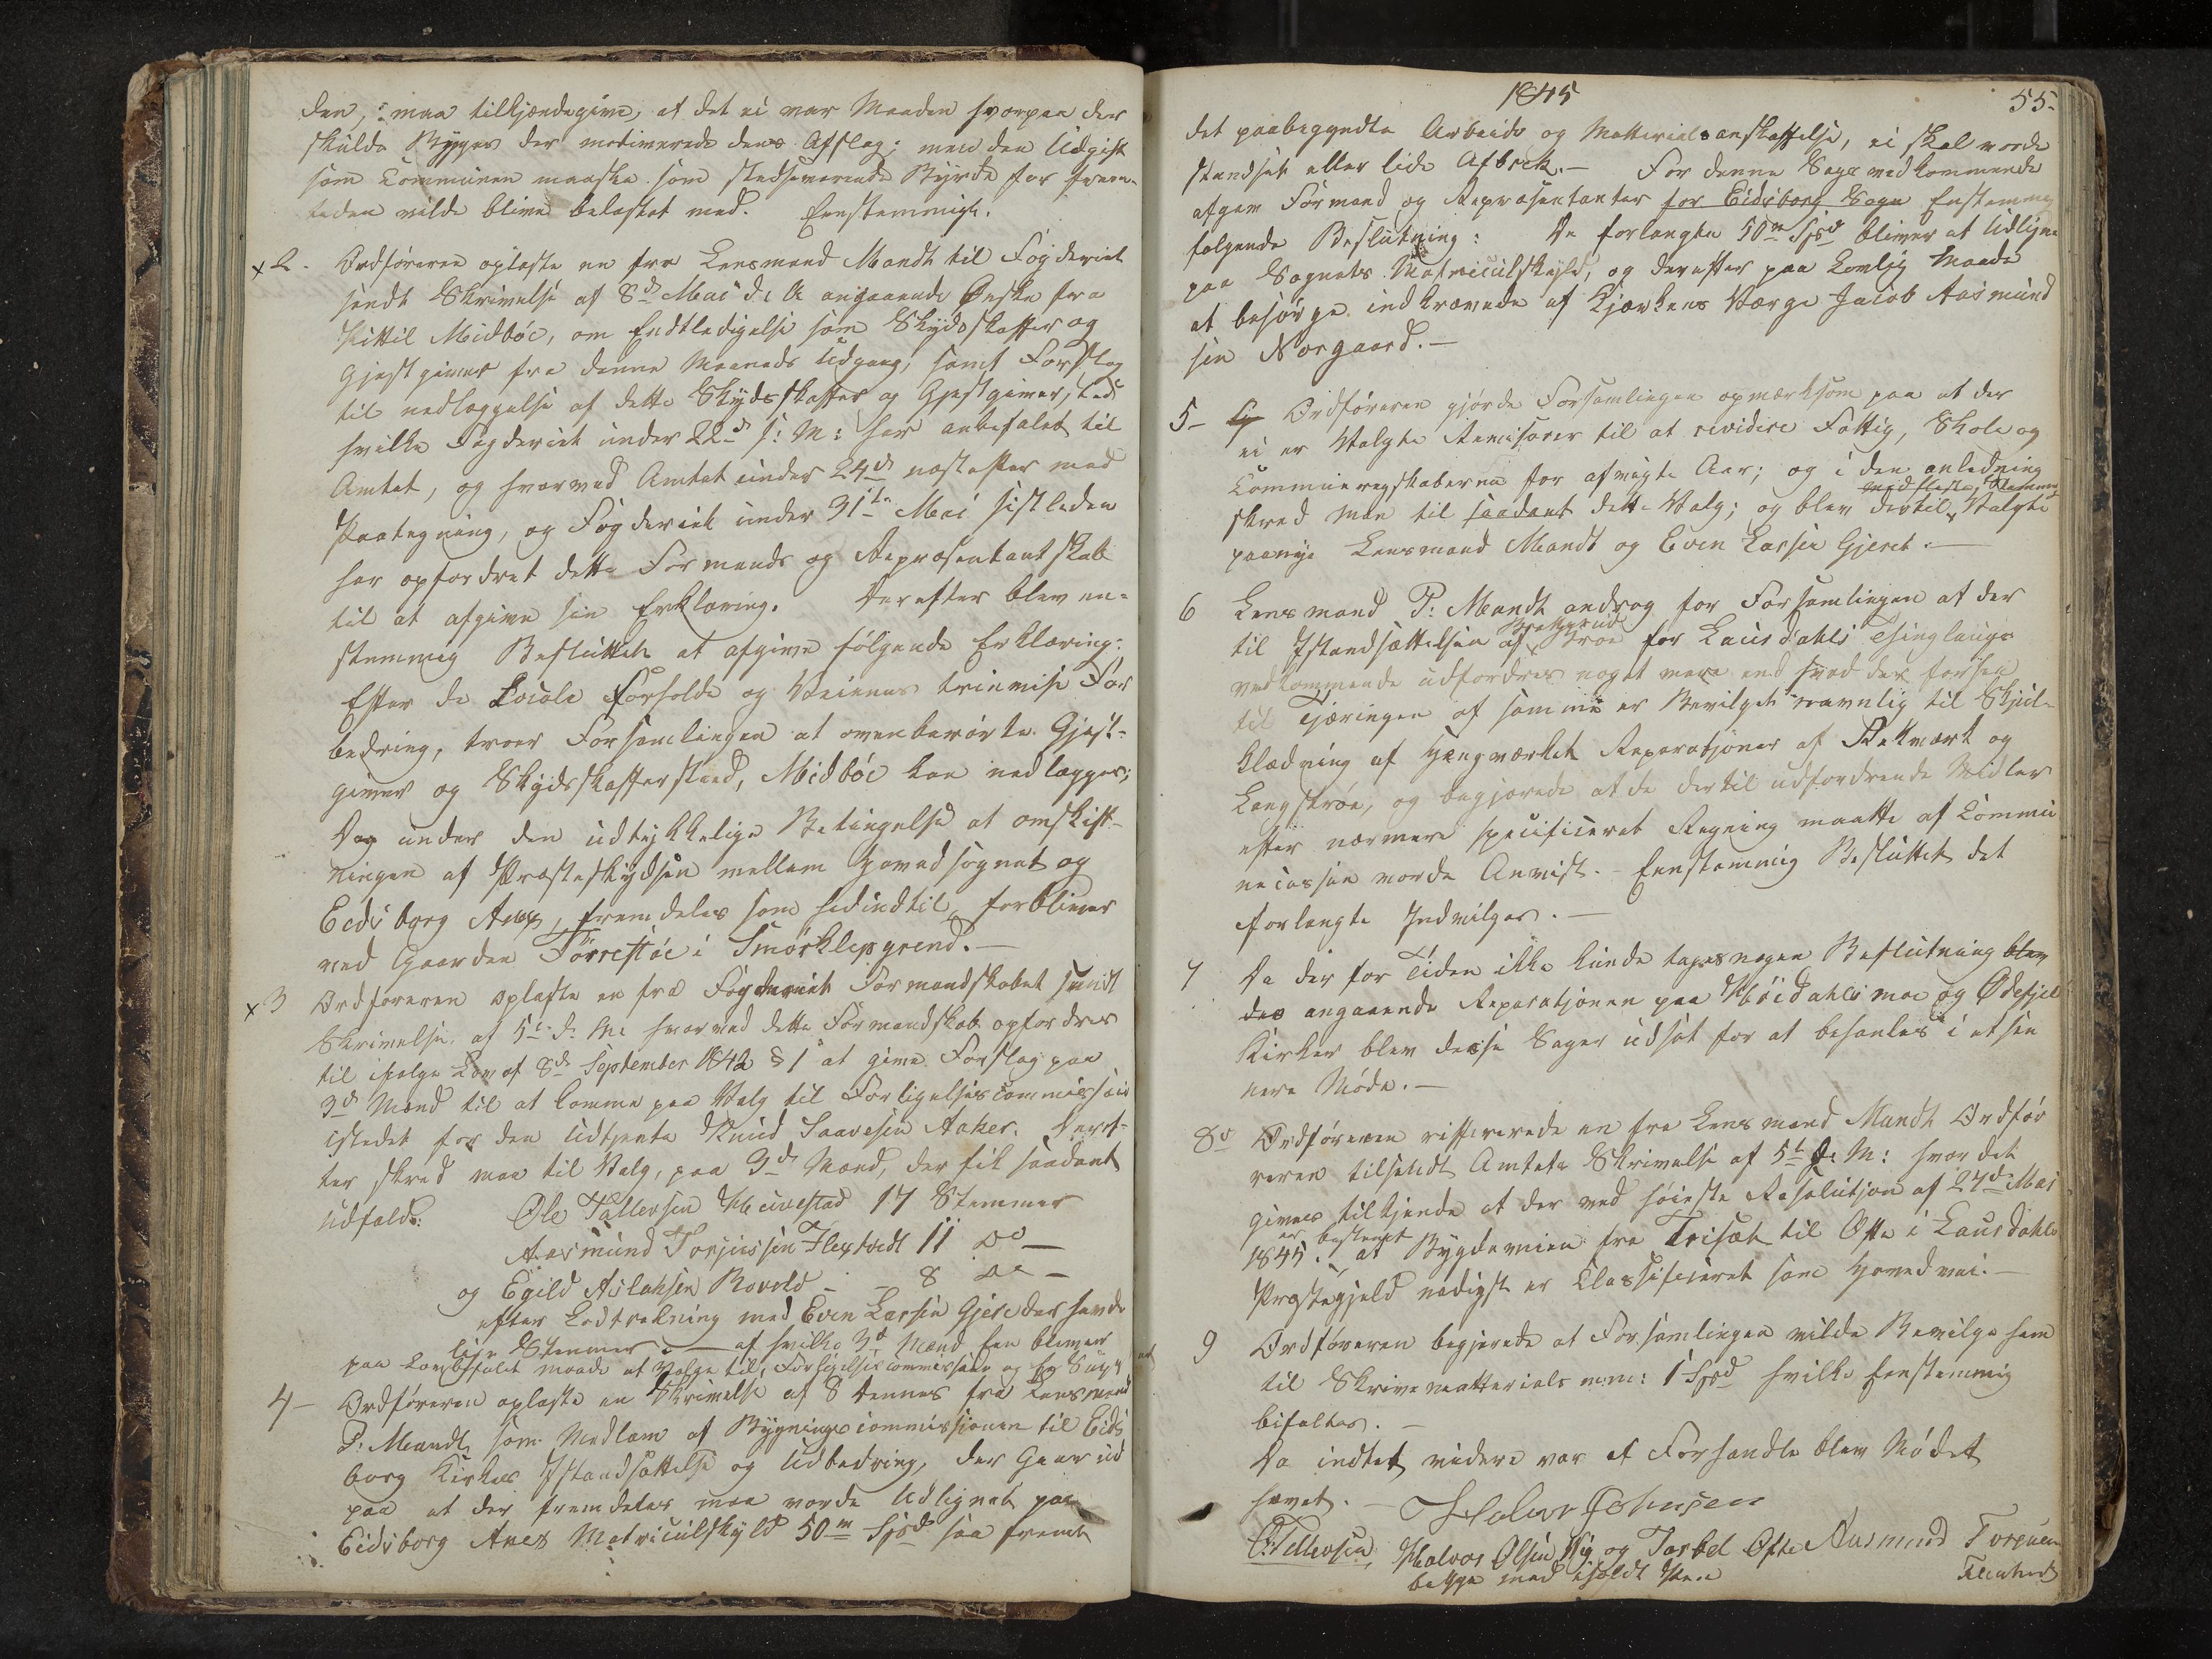 den, maa tilkjendegive, at det ei var Maaden hvorpaa der
skulde Bygges der motiverede dens Afslag; men den Udgift
som Communen maaske som stedsevarende Byrde for frem-
tiden vilde blive belastet med. Eenstemmigt.
x 2. Ordføreren oplæste en fra Lensmand Mandt til Fogderiet
sendt Skrivelse af 8de Mai d. A angaaende Ønske fra
Kittil Midbøe, om Endtledigelse som Skydsskaffer og
Gjestgiver fra denne Maaneds Udgang, samt Forslag
til nedlæggelse af dette Skydsskaffer og Gjestgiversted
hvilke Fogderiet under 22de s: M: har anbefalet til
Amtet, og hvorved Amtet under 24de næstefter med
Paategning, og Fogderiet under 31te Mai sistleden
har opfordret dette Formands og Repræsentantskab
til at afgive sin Erklæring. Derefter blev een-
stemmig Besluttet at afgive følgende Erklæring:
Efter de Locale Forholde og Veienes trinvise For
bedring, troer Forsamlingen at ovenberørte Gjest-
giver og Skydsskafferstæd, Midbøe kan nedlægges;
Dog under den udtrykkelige Betingelse at omskift-
ningen af Præsteskydsen mellem Hovedsognet og
Eidsborg Anex, fremdeles som hidindtil, forbliver
ved Gaarden Førrestøe i Smørklepgrend.—
x 3 Ordføreren oplæste en fra Fogderiet Formandskabet sendt
Skrivelse af 5te d. M: hvorved dette Formandskab opfordres
til ifølge Lov af 8de September 1842 § 1 at give Forslag paa
3de Mænd til at komme paa Valg til Forligelsescommissair
istedet for den Udtjente Knud Saavesen Aaker. Deref-
ter skred man til Valg, paa 3de Mænd, der fik saadant
Udfald: Ole Tallevsen 17 Stemmer
Aasmund Torjussen Flextvedt 11 Do —
og Egild Aslaksen Rovold — 8 Do —
efter Lodtrekning med Even Larsen Gjere der havde
lige Stemmer.— af hvilke 3de Mænd Een bliver
paa Lovbefalet maade at Vælge til Forligelsescommissair og
4 — Ordføreren oplæste en Skrivelse af 8 dennes fra Lensmand
P: Mandt som Medlem af Bygningscommissionen til Eids
borg Kirkes Istandsættelse og Udbedring, der Gaar ud
paa at der fremdeles maa vorde Udlignet paa
Eidsborg Anex Matriculskyld 50m Spd saa fremt
1845
55.
det paabegyndte Arbeide og Matterialsanskaffelse, ei skal vorde
standset eller lide Afbrek.— For denne Sags vedkommende
afgav Formend og Repræsentanter for Eidsborg Sogn Enstemmig
følgende Beslutning: De forlangte 50m Spd bliver at Udligne
paa Sognets Matriculskyld, og derefter paa Lovlig Maade
at besørge indkrævede af Kjærkens Værge Jacob Aasmund
sen Norgaard.—
5 — Ordføreren gjørde Forsamlingen opmærksom paa at der
ei er Valgte Revisorer til at revidere Fattig, Skole og
Communeregskaberne for afvigte Aar; og i den anledning
skred man til saadant dette Valg; og blev dertil med fleste Stemmer Valgte
paanye Lensmand Mandt og Even Larsen Gjeret.—
6 Lensmand P: Mandt androg for Forsamlingen at der
til Istandsættelsen af Broe for Laurdahls Thinglaugs
vedkommende udfordres noget mere end hvad der forhen
til Tjæringen af samme er Bevilget navnlig til Skjul-
klædning af Hengværket Reparationer af Rekværk og
Langstrøe, og begjærede at de dertil udfordrende Midler
efter nærmere specificeret Regning maatte af Commu
necassen vorde Anvist.— Eenstemmig Besluttet det
forlangte Indvilges.—
7 Da der for Tiden ikke kunde tages nogen Beslutning blev
des angaaende Reparationen paa Høidalsmoe og Ødefjeld
Kirker blev disse Sager udsat for at behanles i et sen
nere Møde.—
8de Ordføreren refererede en fra Lensmand Mandt Ordfør
reren tilsendt Amtets Skrivelse af 5te d. M: hvor det
gives tilkjende at der ved høieste Resolution af 27de Mai
1845 er bestemt at Bygdeveien fra Trisæt til Ofte i Laurdahls
Præstegjeld nedigst er Classificeret som Hovedvei.—
9 Ordføreren begjerede at Forsamlingen vilde Bevilge ham
til Skrivematterials m:m: 1 Spd hvilke Eenstemmig
bifaltes.—
Da indtet videre var at Forhandle blev Mødet
hævet.— Halvor Johnsen
O: Tallevsen, Halvor Olsen og Tarbel Ofte Aasmund Torjusen
begge med iholdt Pen Flextvedt